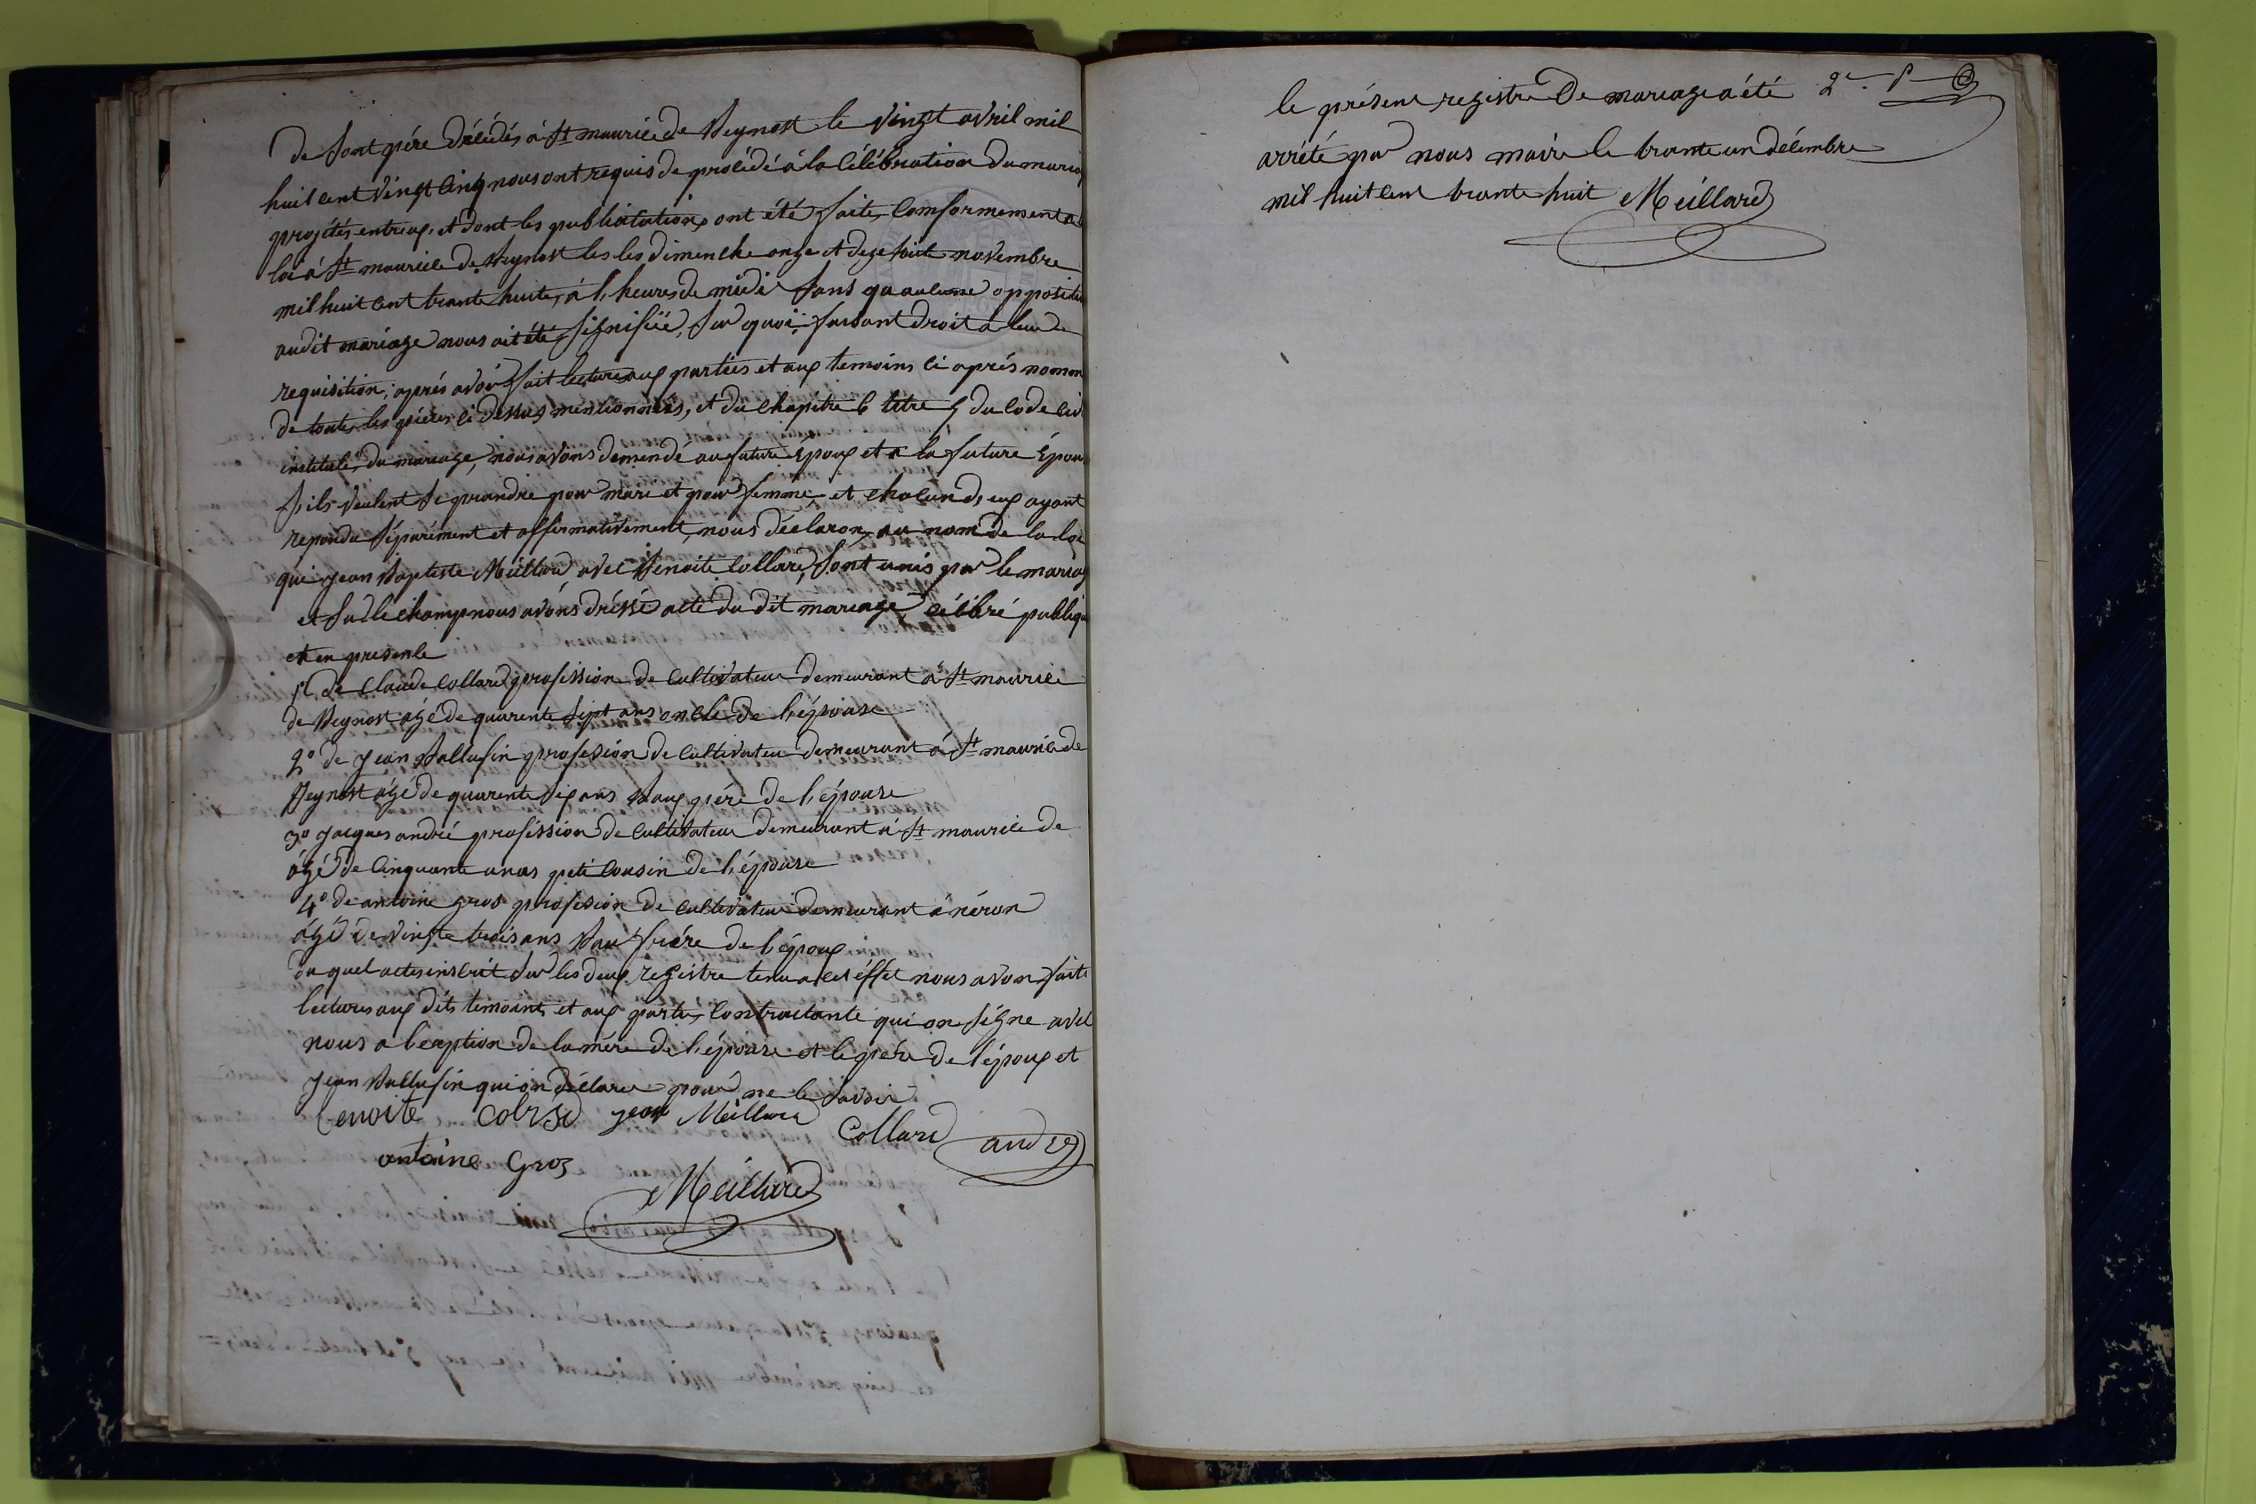 de sont père décédés à St maurice de Beynost le vingt avril mil
huit cent vingt cinq nous ont requis de procédé à la célébration du mariag
projétés entreux et dont les publications ont été faites conformement a
loi à St maurice de Beynost les les dimenche onze et dize huit novembre
mil huit cent trante huite, à l'heures de midi sans qu aucune oppositio
audit mariage nous ait été signifiée, sur quoi faisant droit a leur
requisition, aprés avoir fait lectures aux parties et aux temoins ci aprés nomm
de toutes les pièces ci dessus mentionnées, et du chapitre 6 titre 5 du code civ
intitulé du mariage, nous avons demendé au future époux et a la future épou
s'ils veulent se prandre pour mari et pour femme et chacun d'eux ayant
repondu séparément et affirmativement, nous déclarons au nom de la loi
que jean Baptiste Meillard avec Benoite Collard, sont unis par le mariag
et sur le champ nous avons dréssé acte du dit mariage célébré publiqu
et en presence
1° de Claude Collard profession de cultivateur demeurant à St maurice
de Beynost agé de quarente sept ans oncle de l'épouse
2° de jean Ballufin profession de cultivateur demeurant à St maurice de
Beynost agé de quarente six ans Baux père de l'épouse
3° jacques andré proféssion de cultivateur demeurant à St maurice de
ágé de cinquante anas peti cousin de l'épouse
4° de antoine gros profession de cultivateur demeurant á néron
ágé de vingte trois ans Bau frére de l'époux
du quel actes inscrit sur les deux registre tenu a cet éffet nous avons faite
lectures aux dits temoins et aux parties contractante qui on signe avec
nous a l'exeption de la mére de l'épouse et le père de l'époux et
jean Ballufin qui on déclare pour ne le savoir
Benoite Colrd jean Meillard Collard andre
antoine Gros
Meillard
le présent registre De mariage a été 2e P
arrété par nous maire le trante un décembre
mil huit cent trante huit Meillard